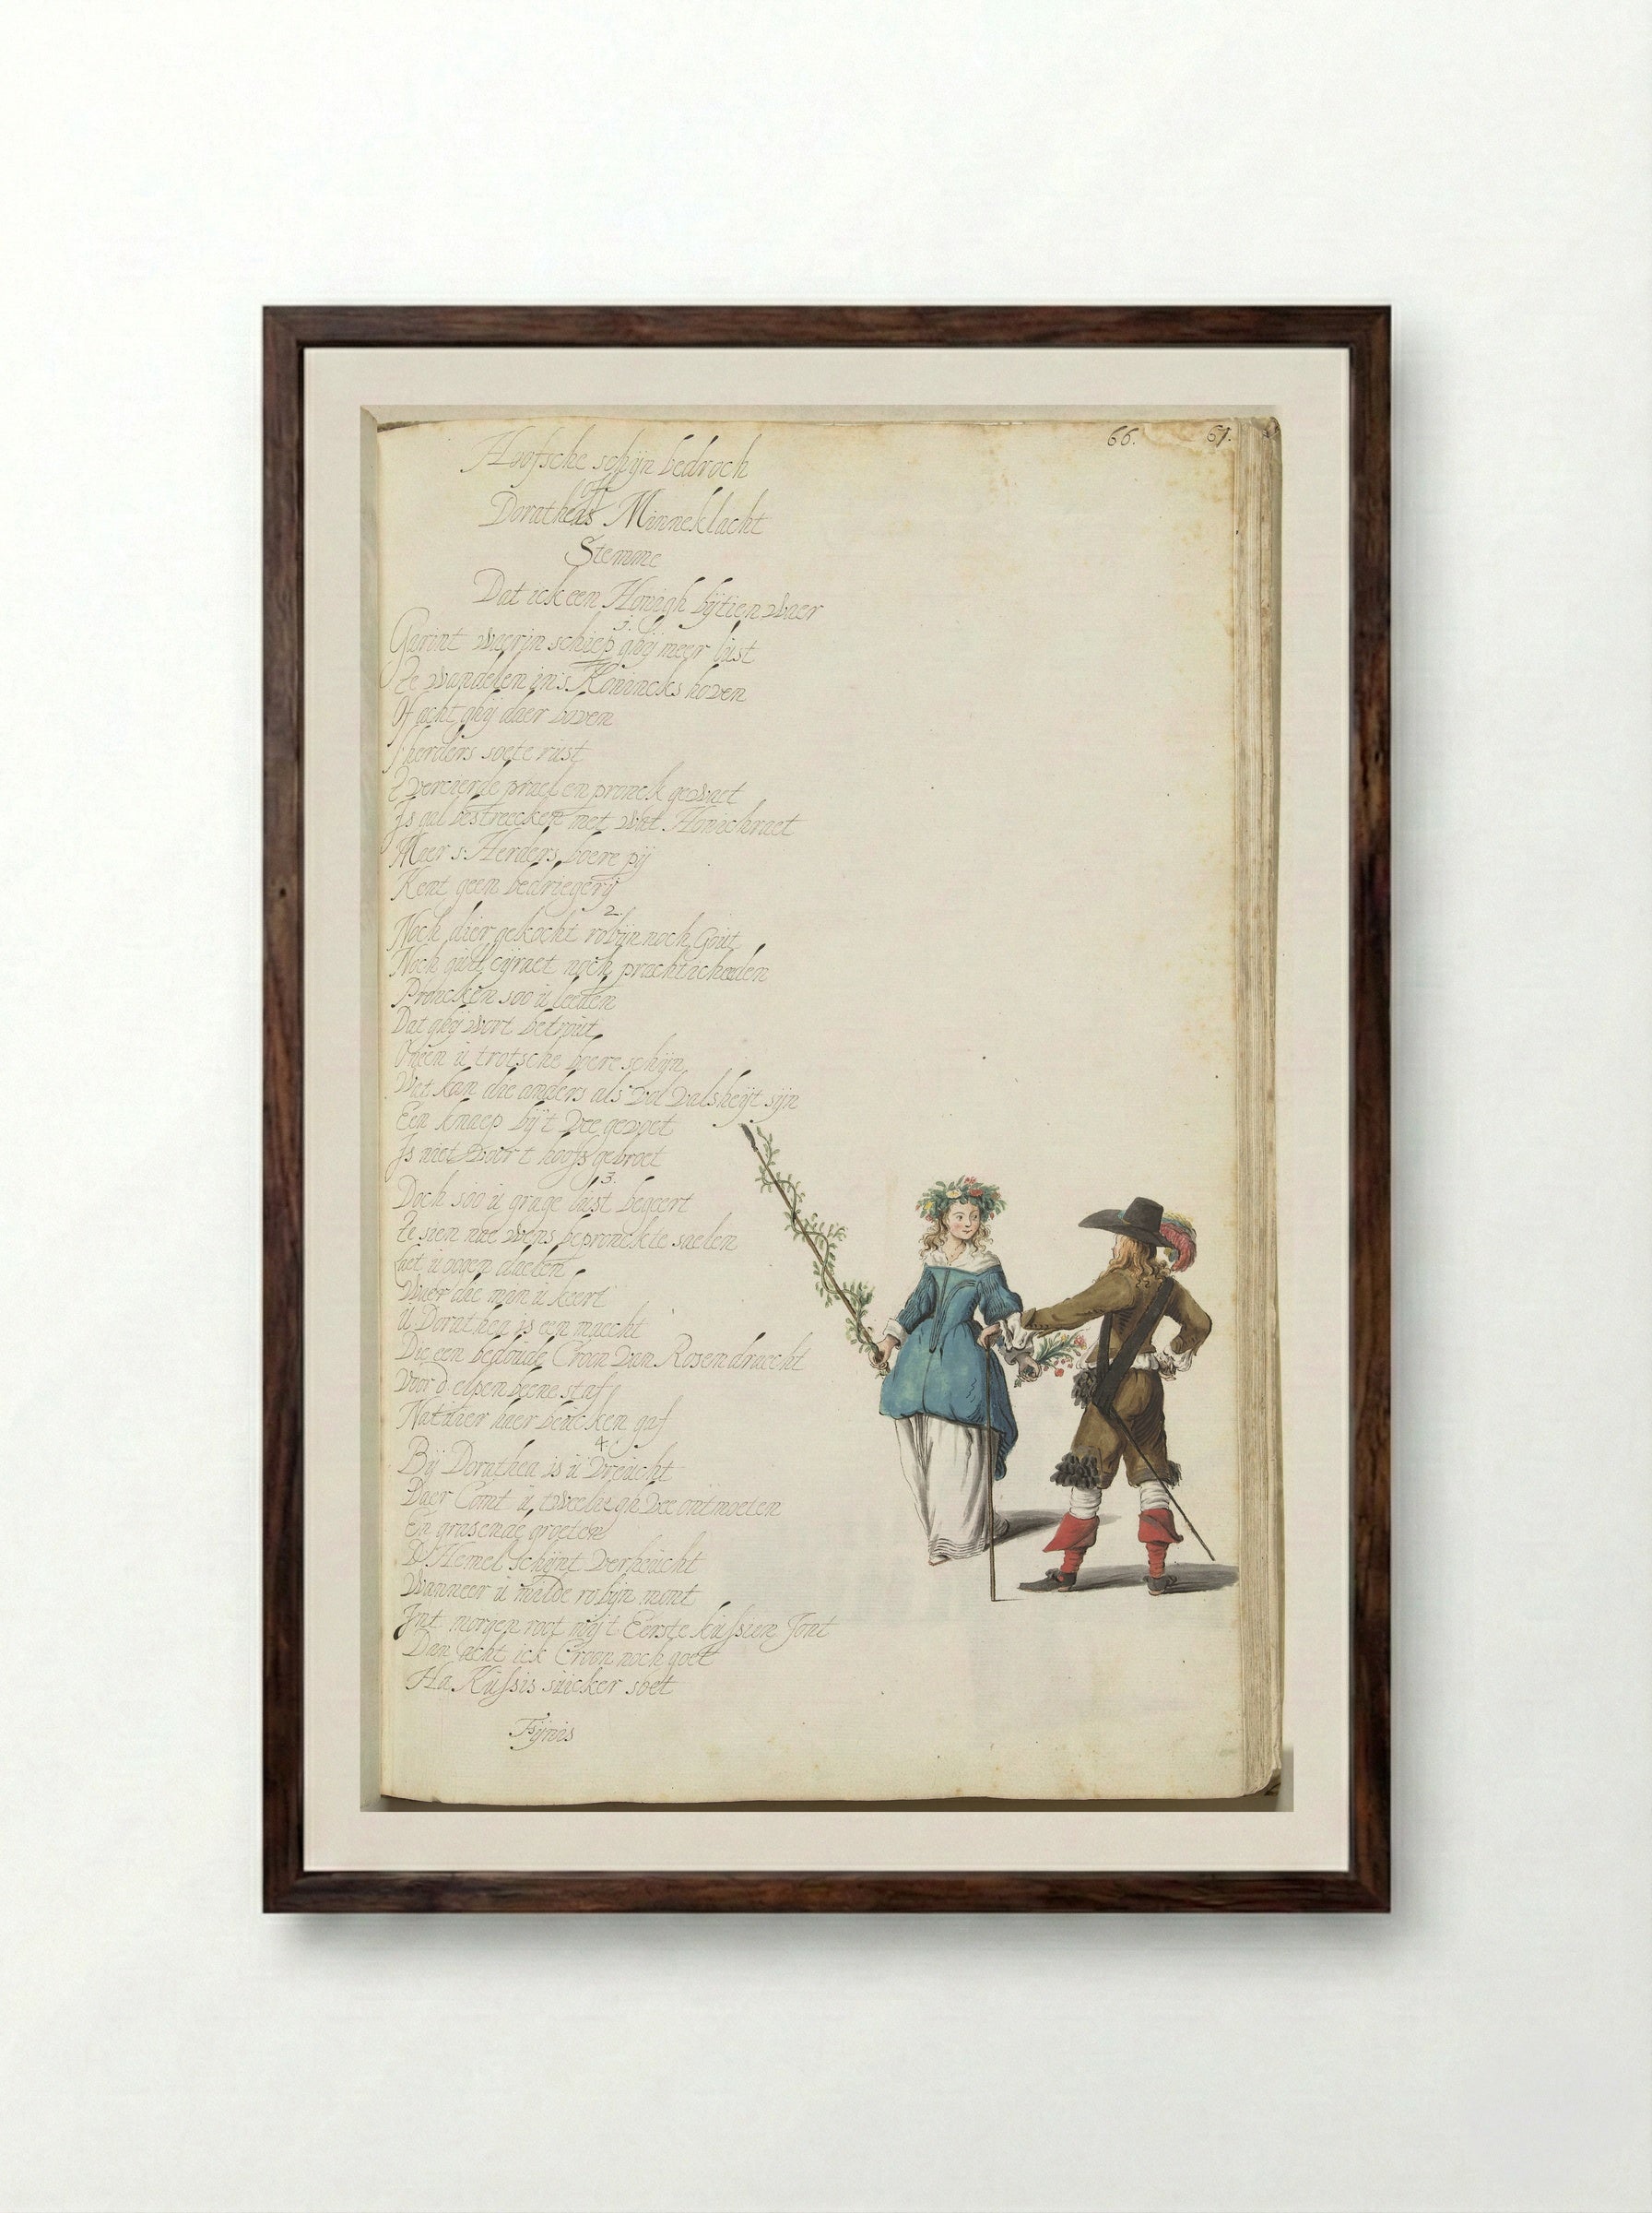 66. 67.
Hoofsche schijn bedroch
off
Doratheas Minneklacht
Stemme
Dat ick een Honigh bijtien waer
1.
Garint waerin schiep ghij meer lust
Te wandelen in s: Konincks hoven
Of acht ghij daer boven
s' herders soete rust
T vercierde prael en pronck gewaet
Is gal bestreecken met wat Honichraet
Maer s: Herders boere pij
Kent geen bedriegerij
2.
Noch dier gekocht robijn noch Gout
Noch gült cijraet noch pracht
Proncken soo ü leeden
Dat ghij wort betrout
ü trotsche boere schijn
Wat kan die anders als vol valsheijt sijn
Een knaep bij't vee gevoet
Is niet voor t hoofs gebroet
3.
Doch soo ü grage lust begeert
Te sien nae wens bepronckte saelen
Laet ü oogen daelen
Waer die min ü keert
U Dorathea is een maecht
Die een bedoude Croon van Rosen draecht
Voor d elpenbeene staf
haer beücken gaf
4.
Bij Dorathea is ü vreücht
Daer Comt ü tweeligh vee ontmoeten
En grasende groeten
D Hemel schijnt verheücht
Wanneer ü malde robijn mont
Int morgen root mij t Eerste küssien Jont
Dan acht ick Croon noch goet
Ha Küssis süicker soet
Fijnis